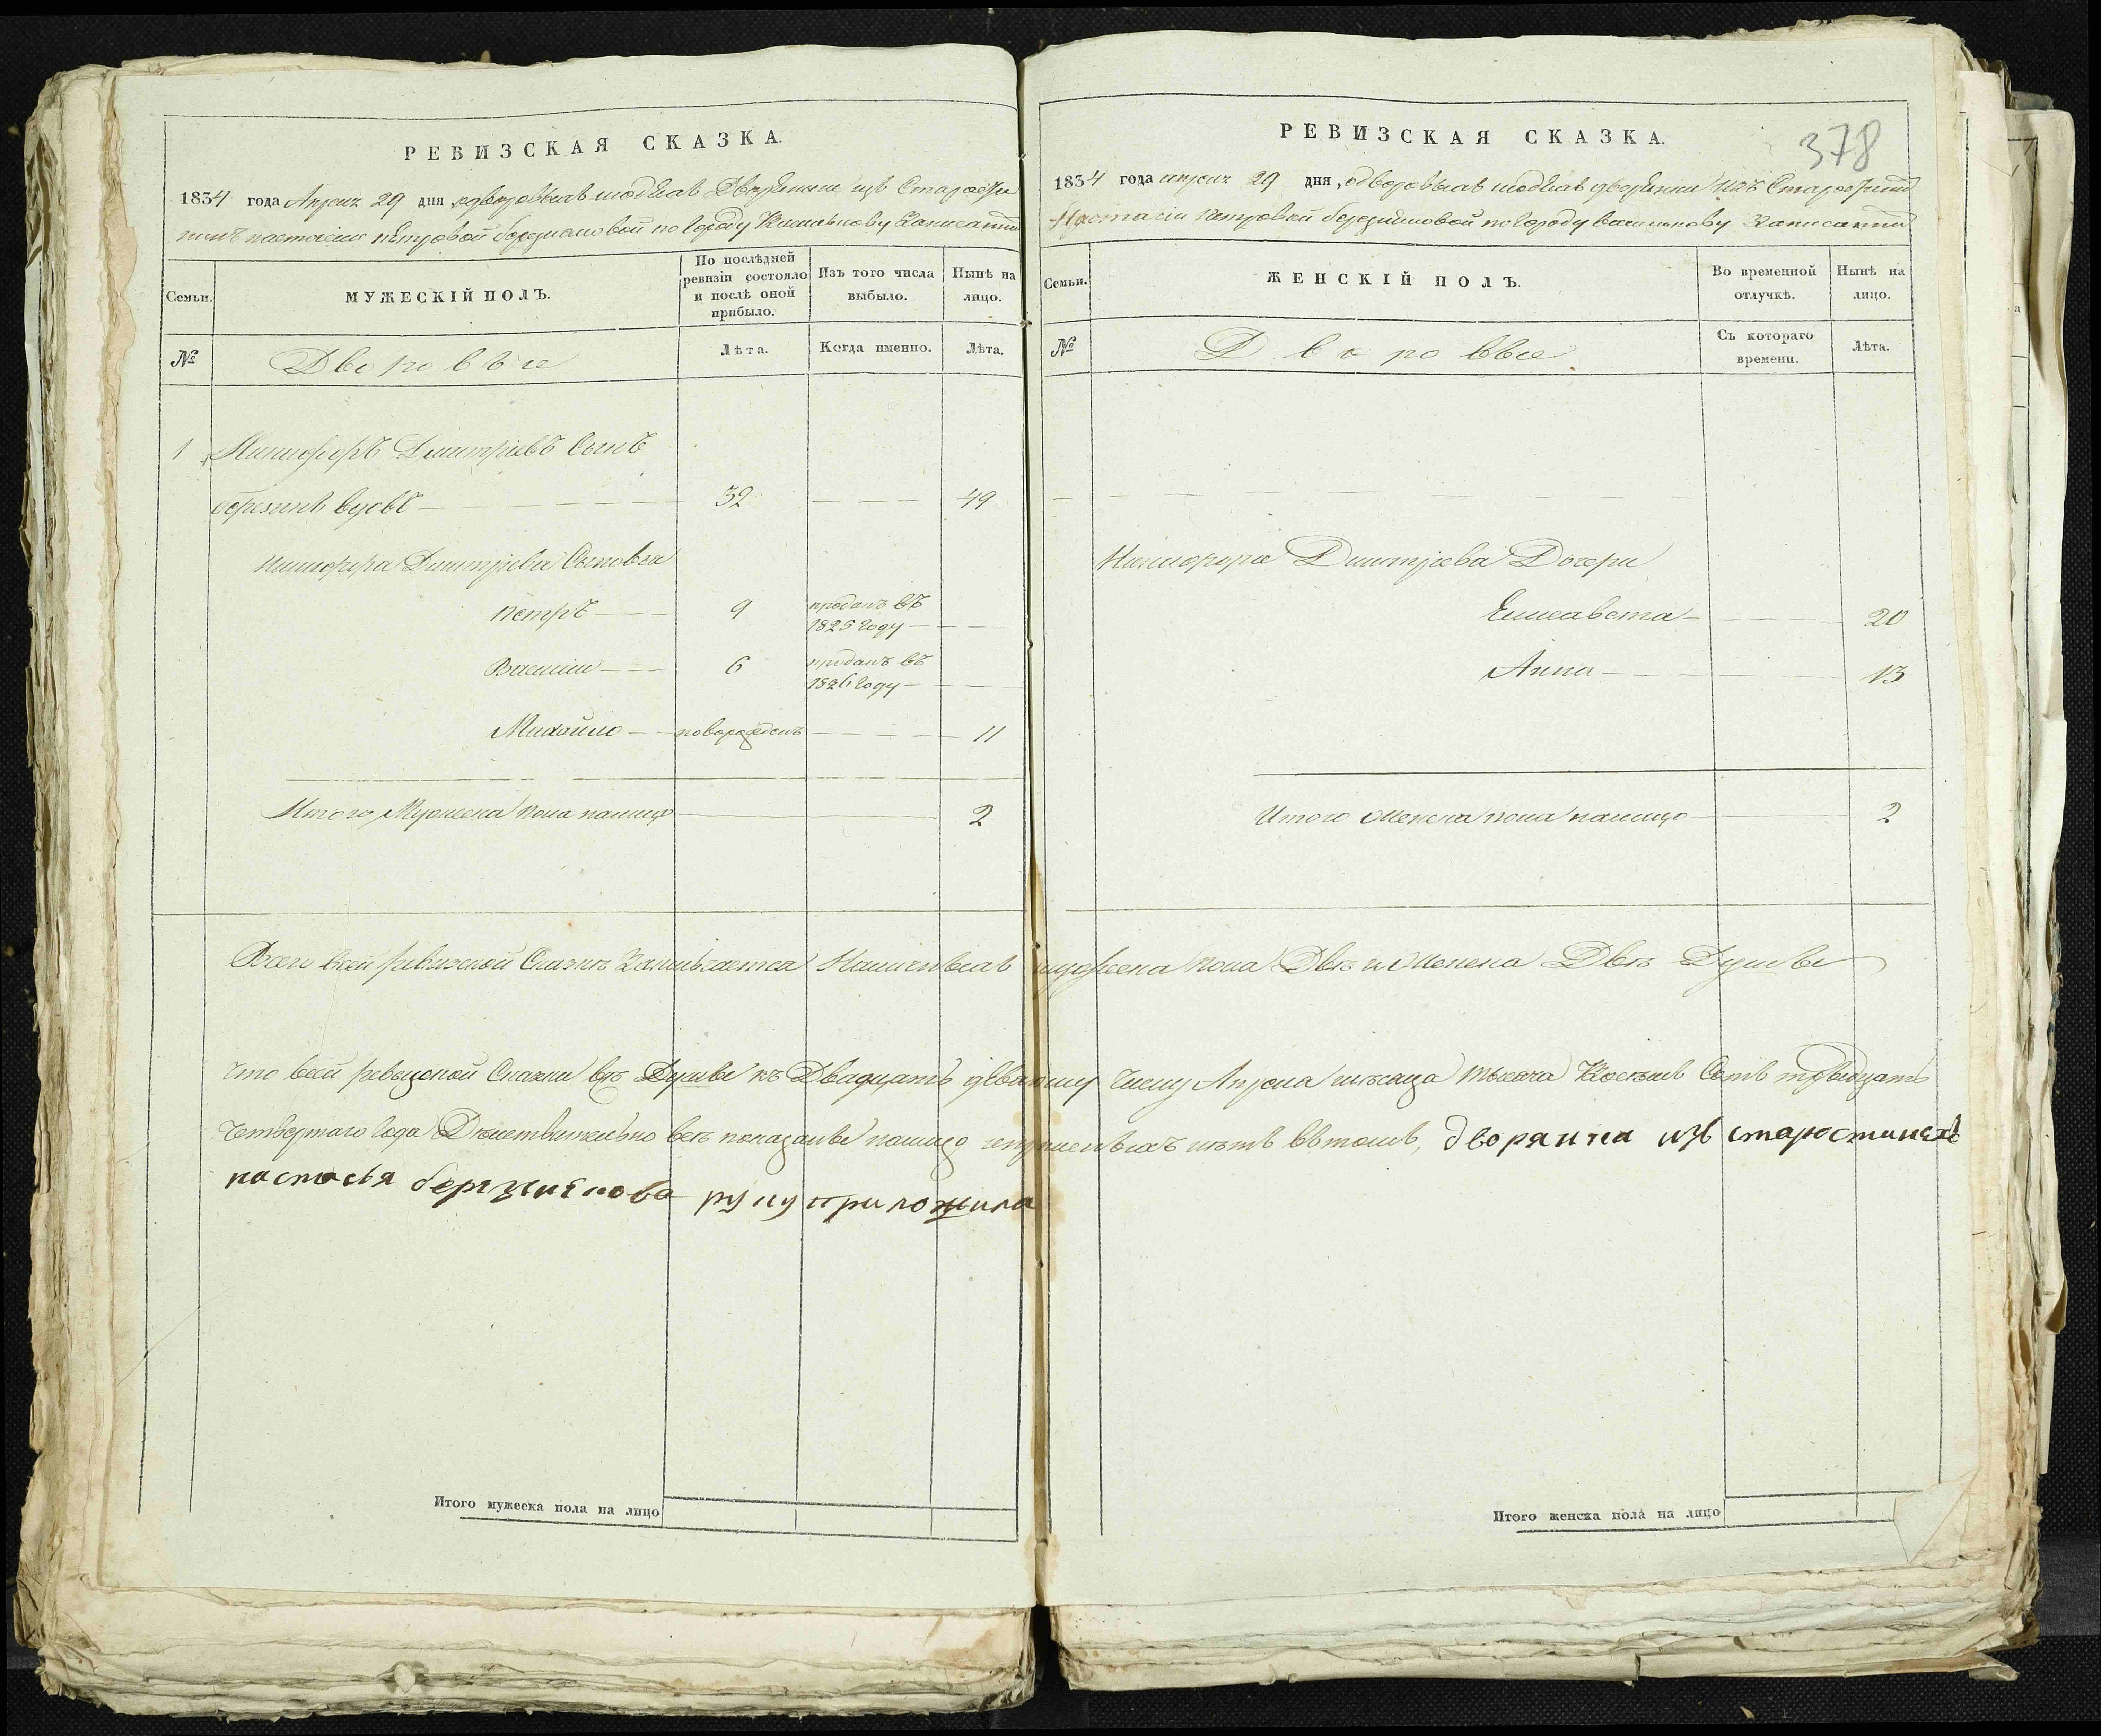 РЕВИЗСКАЯ СКАЗКА.
1834 года Апреля 29 дня, одворовыхъ людяхъ Дворянки изъ Старости
нихъ настасіи петровой березниковой по Городу Записанныхъ
Семьи.
МУЖЕСКІЙ ПОЛЪ.
По послѣдней ревизіи состояло и послѣ оной прибыло.
Изъ того числа выбыло.
Нынѣ на лицо.
№
Дворовые
Лѣта.
Когда именно.
Лѣта.
1 Никифоръ Димитріевъ Сынъ
вдовъ 32 49
никифора Димитріева Сыновья
петръ 9 проданъ въ
1825 году
Василии 6 проданъ въ
1826 году
Михойло новорожденъ 11
Итого Мужеска пола налицо 2
Итого мужеска пола на лицо
РЕВИЗСКАЯ СКАЗКА.
378
1834 года апреля 29 дня, одворовыхъ людяхъ дворянки изъ
Настасіи петровой по Городу Записанныхъ
Семьи.
ЖЕНСКІЙ ПОЛЪ.
Во временной отлучкѣ.
Нынѣ на лицо.
№
Дворовые
Съ котораго времени.
Лѣта.
Никифора Димитріева Дочери
Елисавета 20
Анна 13
Итого женска пола налицо 2
Всего всей ревизской Сказкѣ наличныхъ мужеска пола Двѣ и женска Двѣ Душы
что всей ревизской Сказки всѣ Душы къ Двадцать девятому Числу Апреля мѣсяца тысяча Восемь Сотъ тридцать
Четвертаго Года Действительно всѣ показаны налицо нѣтъ втомъ, дворянка изъ старостиныхъ
настасья руку приложила
Итого женска пола на лицо